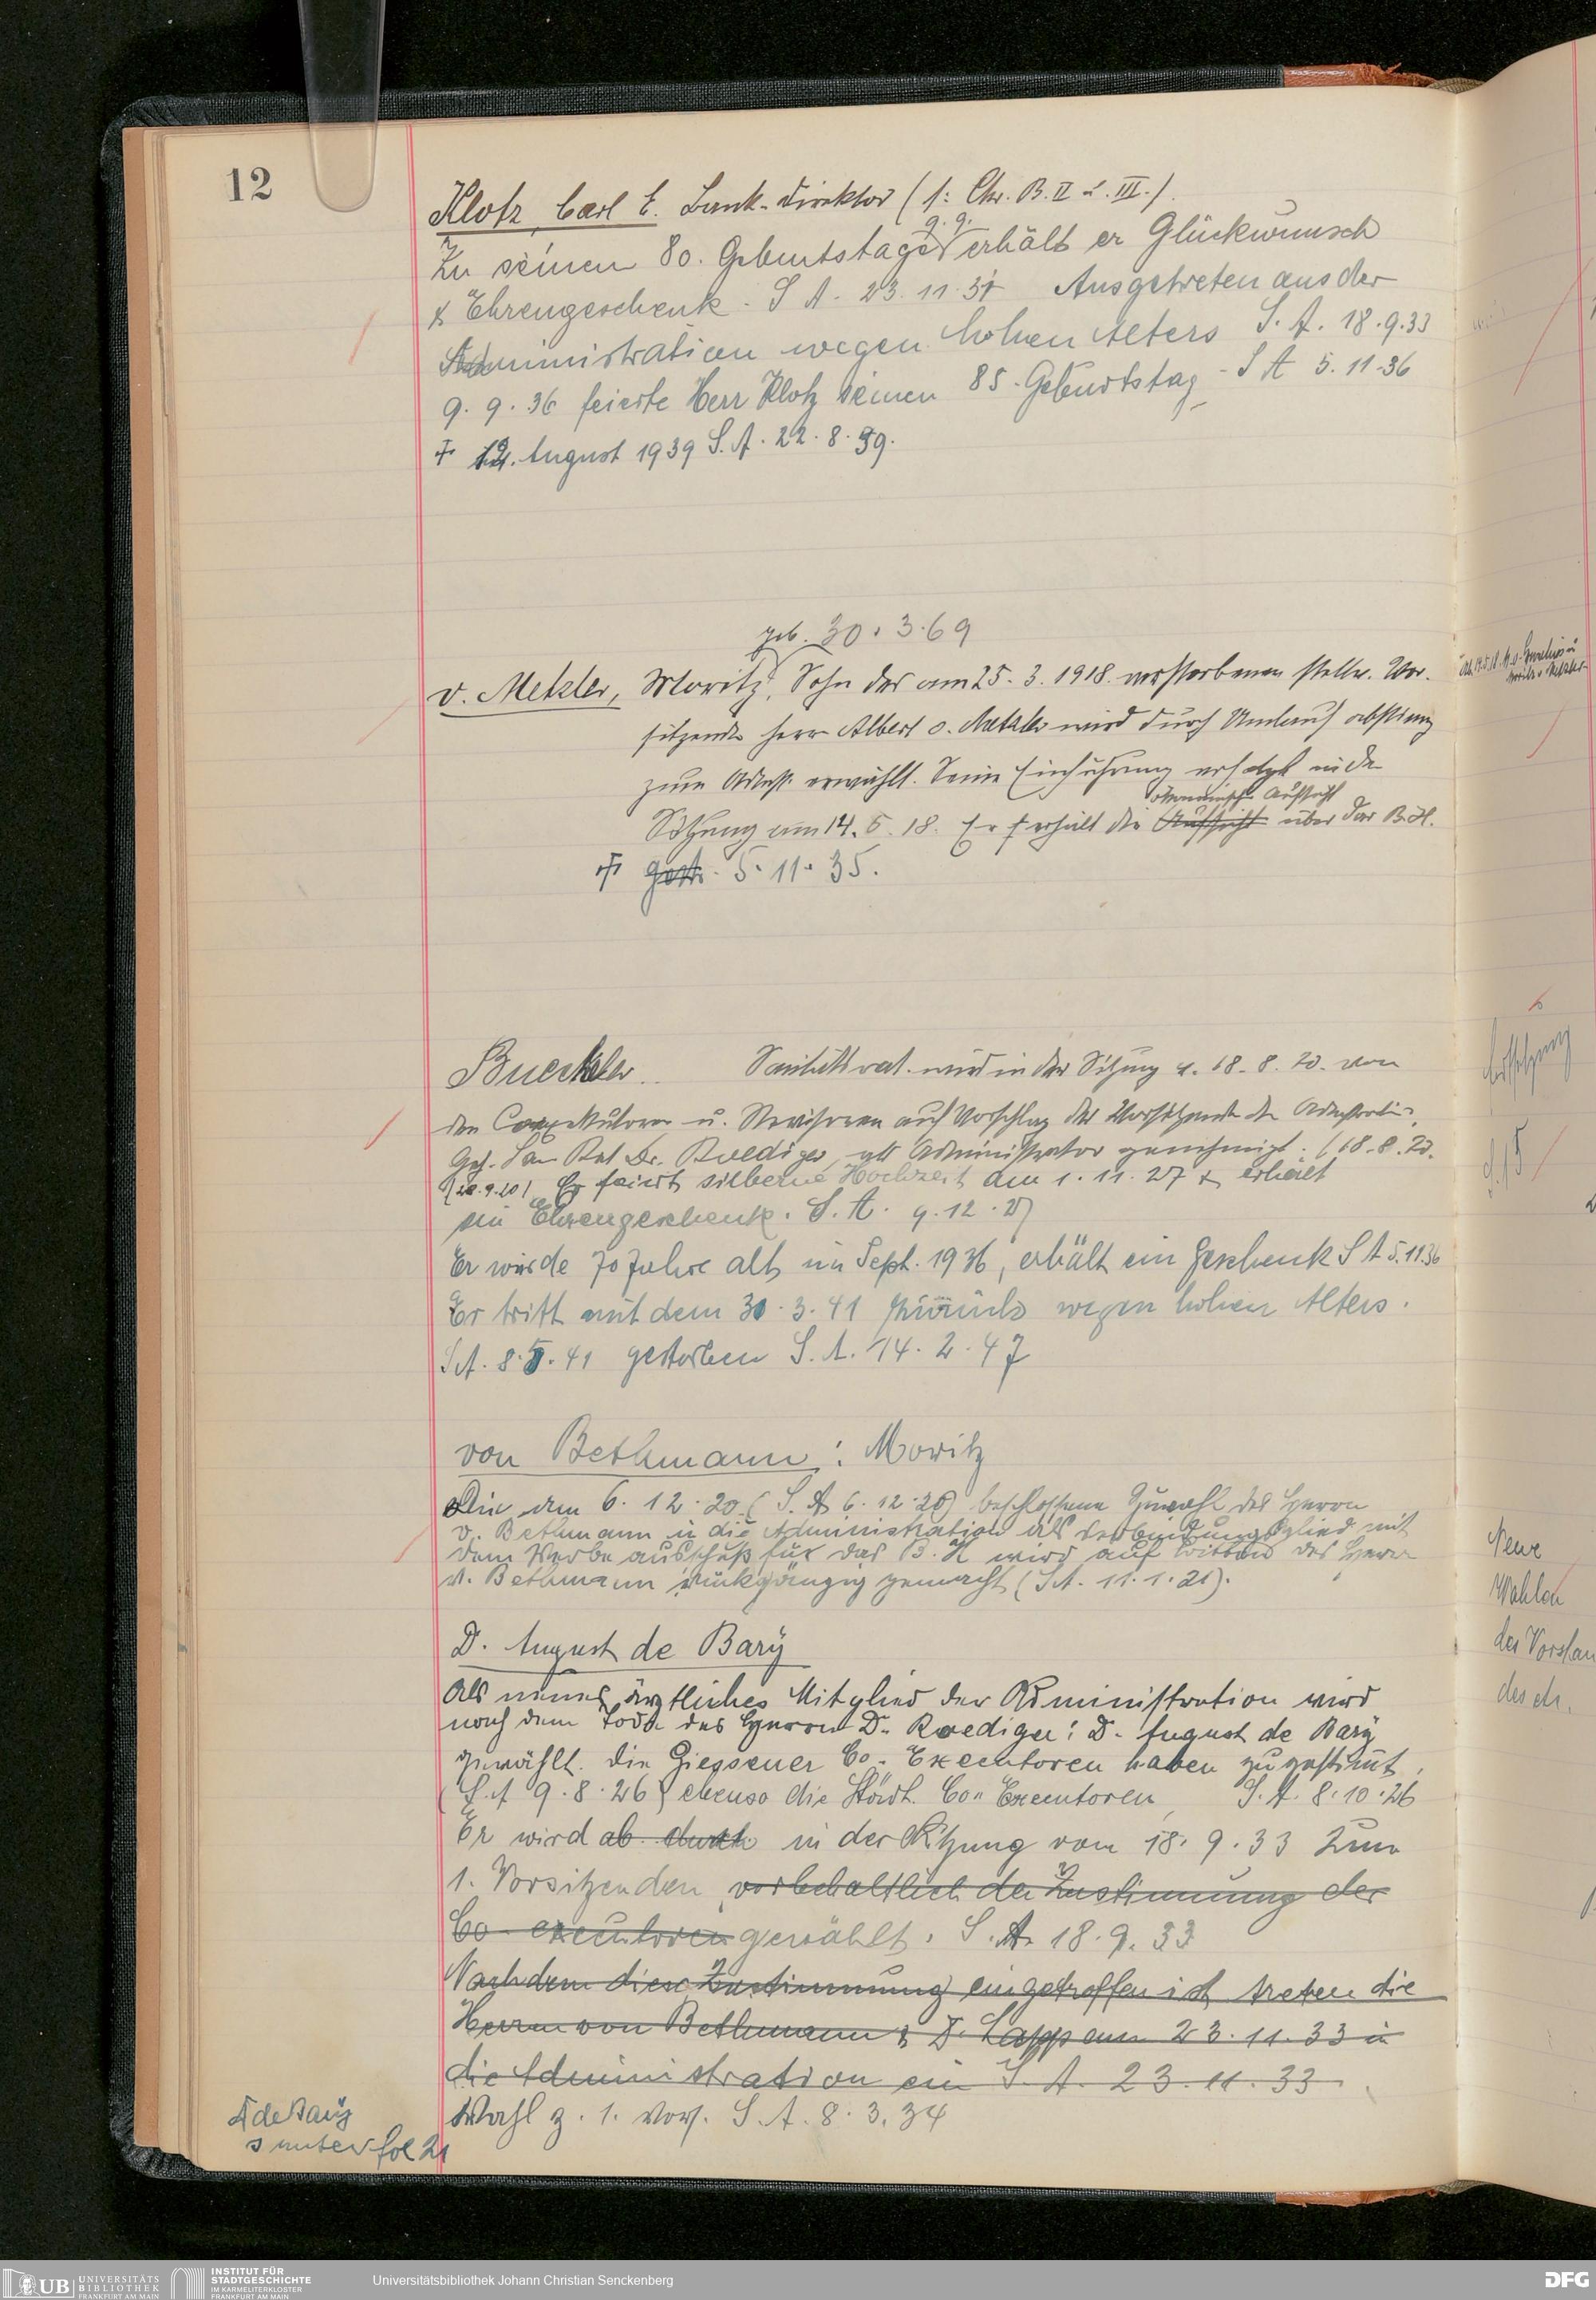 12
Klotz, Carl E. Bank-Direktor (f: Chr. B. II u. III.)
9. 9.
Zu seinem 80. Geburtstage erhält er Glückwunsch
& Ehrengeschenk. S A. 23. 11. 31 Ausgetreten aus der
Administration wegen hohen Alters S. A. 18. 9. 33
9. 9. 36 feierte Herr Klotz seinen 85. Geburtstag - S A 5. 11. 36
August 1939 S. A. 22. 8. 39.
geb. 30. 3. 69
v. Metzler, Moritz, Sohn des am 25. 3. 1918. verstorbenen stellv. Vor-
sitzenden Herrn Albert v. Metzler wird durch Umlauf abstimg
zum Admstr. erwählt. Seine Einführung erfolgt in der
ökonomische Aufsicht
Sitzung am 14. 5. 18. Er erhält die Aufsicht über das B.H.
† gest. 5. 11. 35.
Bueckler Sanitätsrat wird in der Sitzung v. 18. 8. 20. von
den Coexekutoren u. Revisoren auf Vorschlag des Vorsitzenden der
Geh. San Rat Dr. Roediger, als Administrator genehmigt. (18. 8. 20.
(20. 9. 20) Er feiert silberne Hochzeit am 1. 11. 27 & erhält
ein Ehrengeschenk. S. A. 9. 12. 27
Er wurde 70 Jahre alt im Sept. 1936, erhält ein Geschenk S A 5. 11 36
Er tritt mit dem 31. 3. 41 zurück wegen hohen Alters.
S A. 8. 5. 41 gestorben S. A. 14. 2. 47
von Bethmann: Moritz
Die am 6. 12. 20 (S. A 6. 12. 20) beschlossene Zuwahl des Herrn
v. Bethmann in die Administration als Verbindungsglied mit
dem Werbeausschuß für das B. H wird auf Bitten des Herrn
v. Bethmann rückgängig gemacht (S A. 11. 1. 21).
D. August de Bary
Als neues ärztliches Mitglied der Administration wird
nach dem Tode des Herrn Dr. Roediger: D. August de Bary
gewählt. Die Giessener Co-Executoren haben zugestimt,
(S. A 9. 8. 26) ebenso die Städt. Co-Executoren, S. A. 8. 10. 26
Er wird ab durch in der Sitzung vom 18. 9. 33 zum
1. Vorsitzenden vorbehaltlich der Zustimmung der
Co-executoren gewählt. S. A. 18. 9. 33
Nachdem diese Zustimmung eingetroffen ist treten die
Herren von Bethmann & D. Lapp am 23. 11. 33 in
die Administration ein S. A. 23. 11. 33
Wahl z. 1. Vors. S. A. 8. 3. 34
de Bary
s unter fol 21
Neue
Wahlen
des Vorstan
UB UNIVERSITÄTS
BIBLIOTHEK
FRANKFURT AM MAIN
INSTITUT FÜR
STADTGESCHICHTE
IM KARMELITERKLOSTER
FRANKFURT AM MAIN
Universitätsbibliothek Johann Christian Senckenberg
DFG